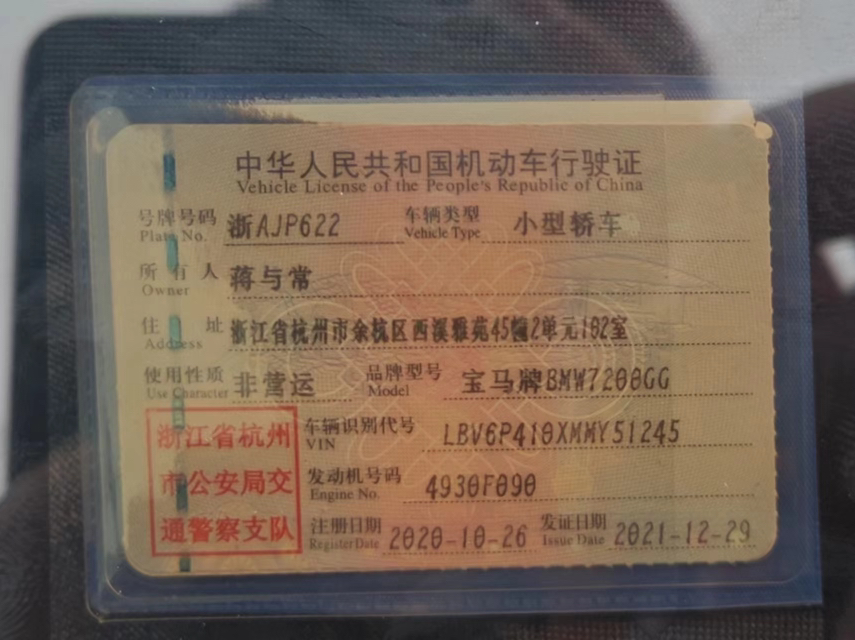 中华人民共和国机动车行驶证
Vehicle License of the People's Republic of China
号牌号码 浙AJP622 车辆类型 小型轿车
Plate No. Vehicle Type
所有人 蒋与常
Owner
住址 浙江省杭州市余杭区西溪雅苑45幢2单元102室
Address
使用性质 非营运 品牌型号 宝马牌BMW7200GG
Use Character Model
浙江省杭州 车辆识别代号 LBV6P410XMMY51245
VIN
市公安局交 发动机号码 4930F090
Engine No.
通警察支队 注册日期 2020-10-26 发证日期 2021-12-29
Register Date Issue Date